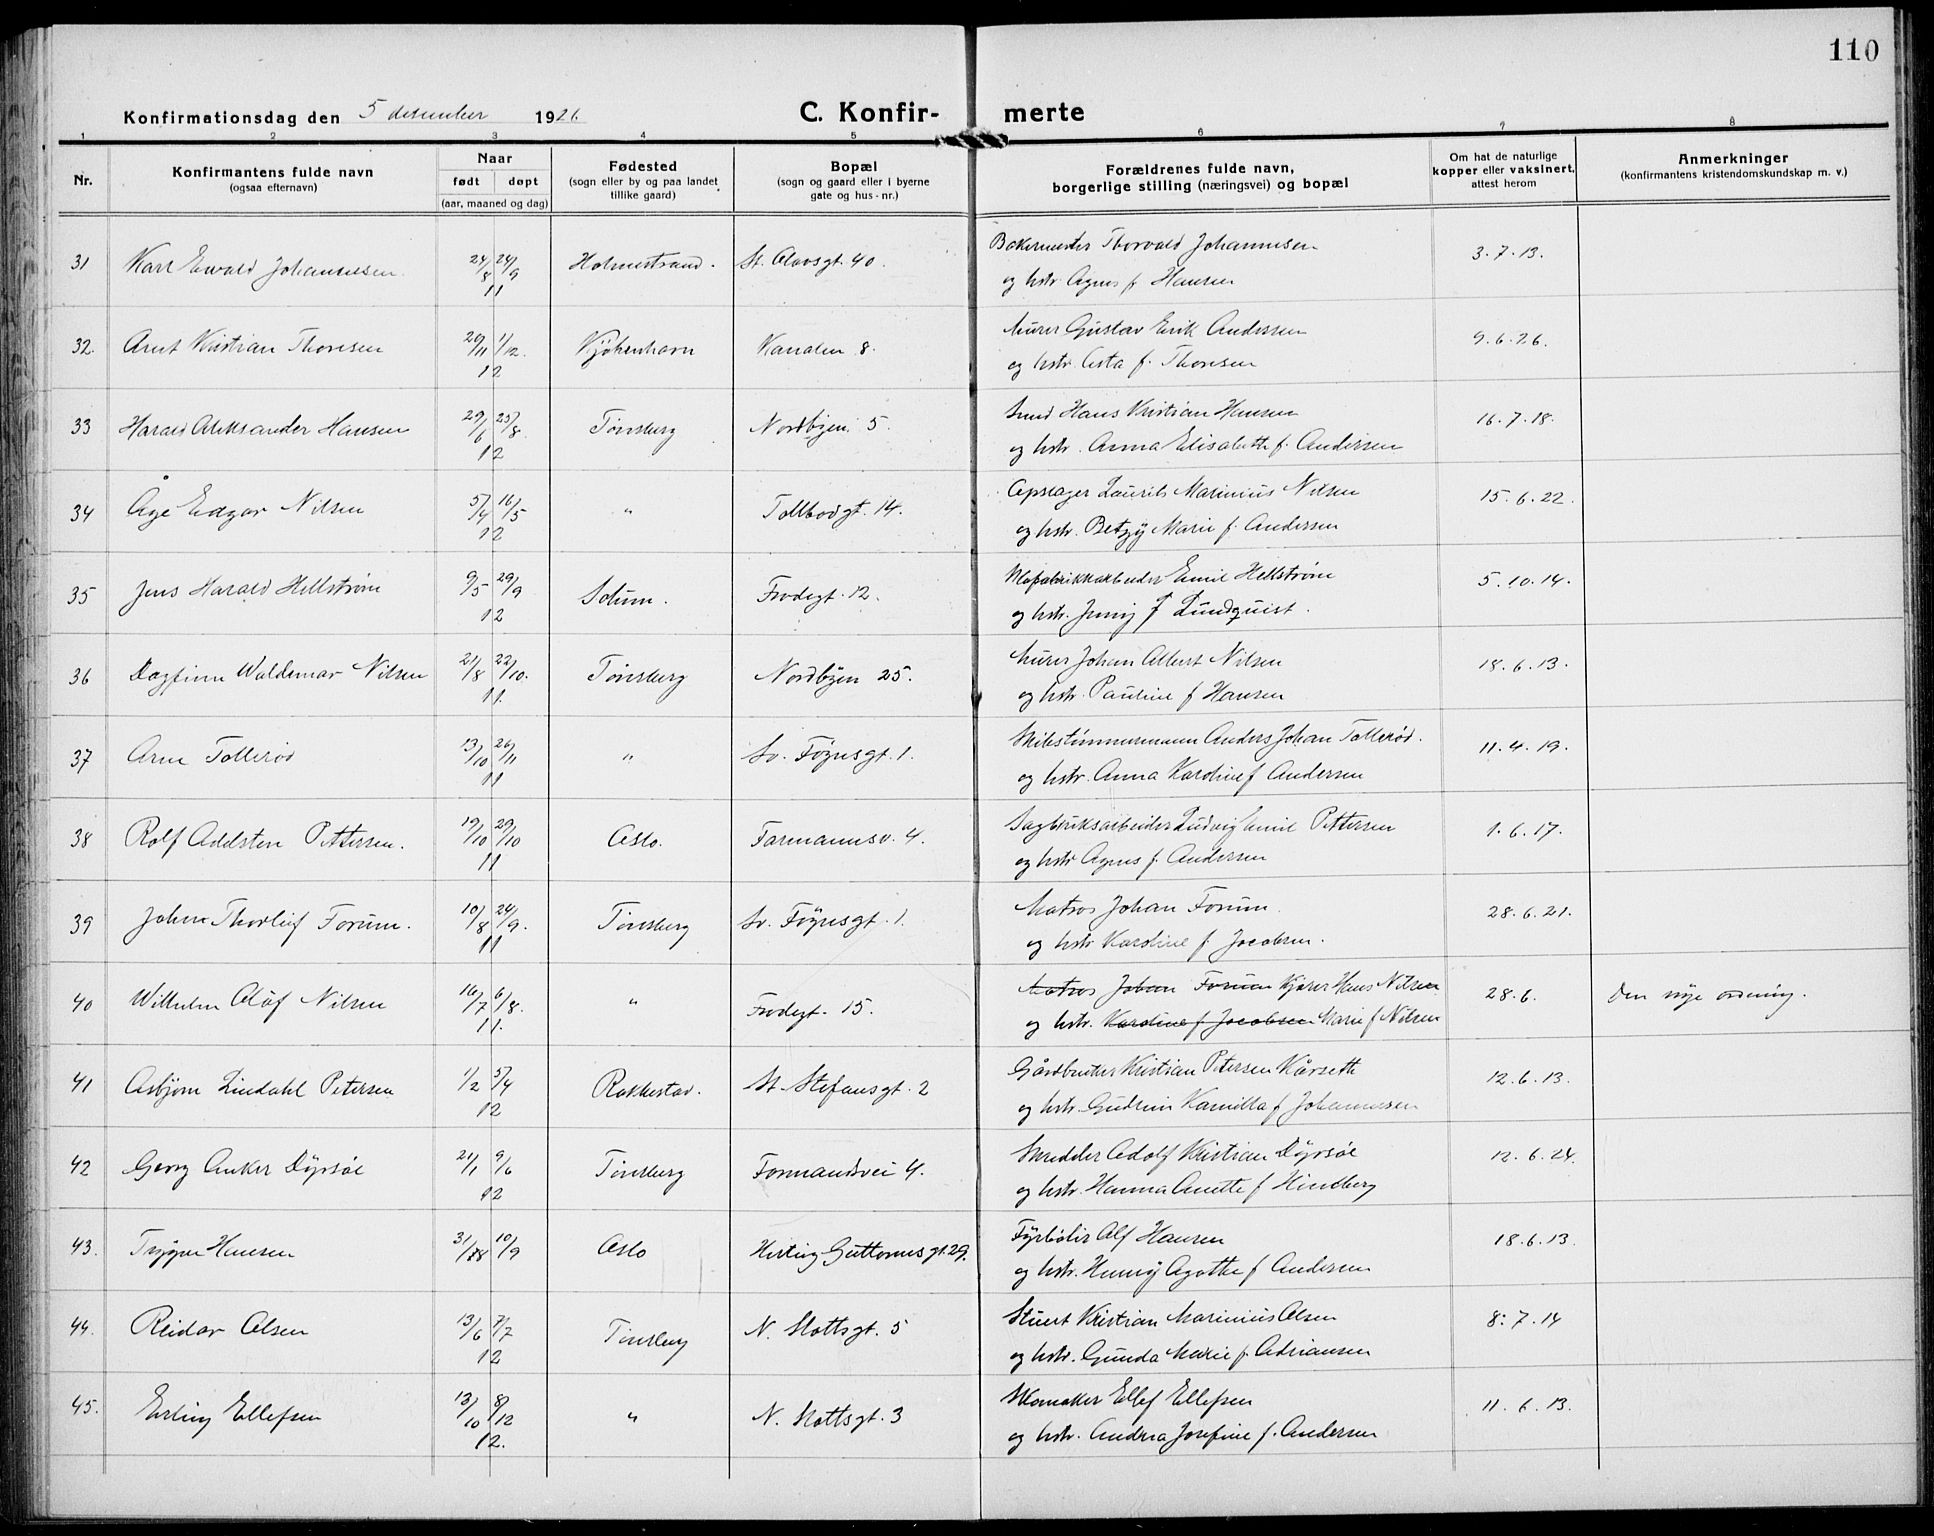 110
Konfirmationsdag den 5 desember 1926
C. Konfir- merte
1 2 3 4 5 6 7 8
Nr.
Konfirmantens fulde navn
(ogsaa efternavn)
Naar
født døpt
(aar, maaned og dag)
Fødested
(sogn eller by og paa landet
tillike gaard)
Bopæl
(sogn og gaard eller i byerne
gate og hus-nr.)
Forældrenes fulde navn,
borgerlige stilling (næringsvei) og bopæl
Om hat de naturlige
kopper eller vaksinert,
attest herom
Anmerkninger
(konfirmantens kristendomskundskap m. v.)
31 Karl Ewald Johannesen 24/8 24/9 Holmestrand. St. Olavsgt. 40. Bakermester Thorvald Johannesen 3.7.13.
11 og hstr. Agnes f Hansen
32. Arnt Kristian Thoresen 29/11 1/12. Kjøbenhavn Kanalen 8. Murer Gustav Erik Andersen 9.6.26.
12 og hstr. Asta f. Thoresen
33 Harald Aleksander Hansen 29/6 25/8. Tønsberg Nordbyen 5. Smed Hans Kristian Hansen 16.7.18.
12 og hstr. Anna Elisabeth f. Andersen
34 Åge Edgar Nilsen 5/4 16/5 " Tollbodgt. 14. Opslager Laurits Marinius Nilsen 15.6.22.
12 og hstr. Betzy Marie f. Andersen
35 Jens Harald Hellstrøm 9/5 29/9 Solum. Frodegt. 12. Emil Hellstrøm 5.10.14.
12 og hstr. Jenny f Lundquist.
36 Dagfinn Waldemar Nilsen 21/8 22/10. Tønsberg Nordbyen 25. Murer Johan Albert Nilsen 18.6.13.
11. og hstr. Pauline f Hansen
37 Arne Tollerød 13/10 26/11 " Sv. Føynsgt. 1. Skibstømmermann Anders Johan Tollerød. 11.4.19.
11 og hstr. Anna Karoline f Andersen
38 Rolf Adelsten Pettersen. 19/10 29/10 Oslo. Farmannsv. 4. Sagbruksarbeider Ludvig Emil Pettersen 1.6.17.
11 og hstr Agnes f. Andersen
39 Johan Thorleif Forum. 10/8 24/9. Tønsberg Sv. Føynsgt. 1. Matros Johan Forum. 28.6.21.
11 og hstr Karoline f. Jacobsen.
40 Wilhelm Olaf Nilsen 16/7 6/8. " Frodegt. 15. Matros Johan Forum Kjører Hans Nilsen 28.6. Den nye ordning.
11. og hstr. Karoline f. Jacobsen Marie f Nilsen
41 Asbjørn Lindahl Petersen 1/2 5/4 Rakkestad. St. Stefansgt. 2 Gårdbruker Kristian Petersen Kårseth 12.6.13.
12 og hstr. Gudrun Kamilla f Johannessen
42 Georg Anker Dyrsøe 21/1 9/6 Tønsberg Formandsvei 4. Skredder Adolf Kristian Dyrsøe 12.6.24.
12 og hstr. Hanna Anette f Hindberg
43. Trygve Hansen 31/8 10/9 Oslo Hertug Guttormsgt. 29. Fyrbøter Alf Hansen 18.6.13.
og hstr. Henny Agathe f Andersen
44. Reidar Olsen 13/6 7/7 Tønsberg N. Slottsgt. 5 Stuert Kristian Marinius Olsen 8.7.14
12 og hstr. Gunda Marie f. Adriansen
45. Erling Ellefsen 13/10 8/12 " N. Slottsgt. 3 Skomaker Ellef Ellefsen 11.6.13.
12. og hstr. Andrea Josefine f. Andersen